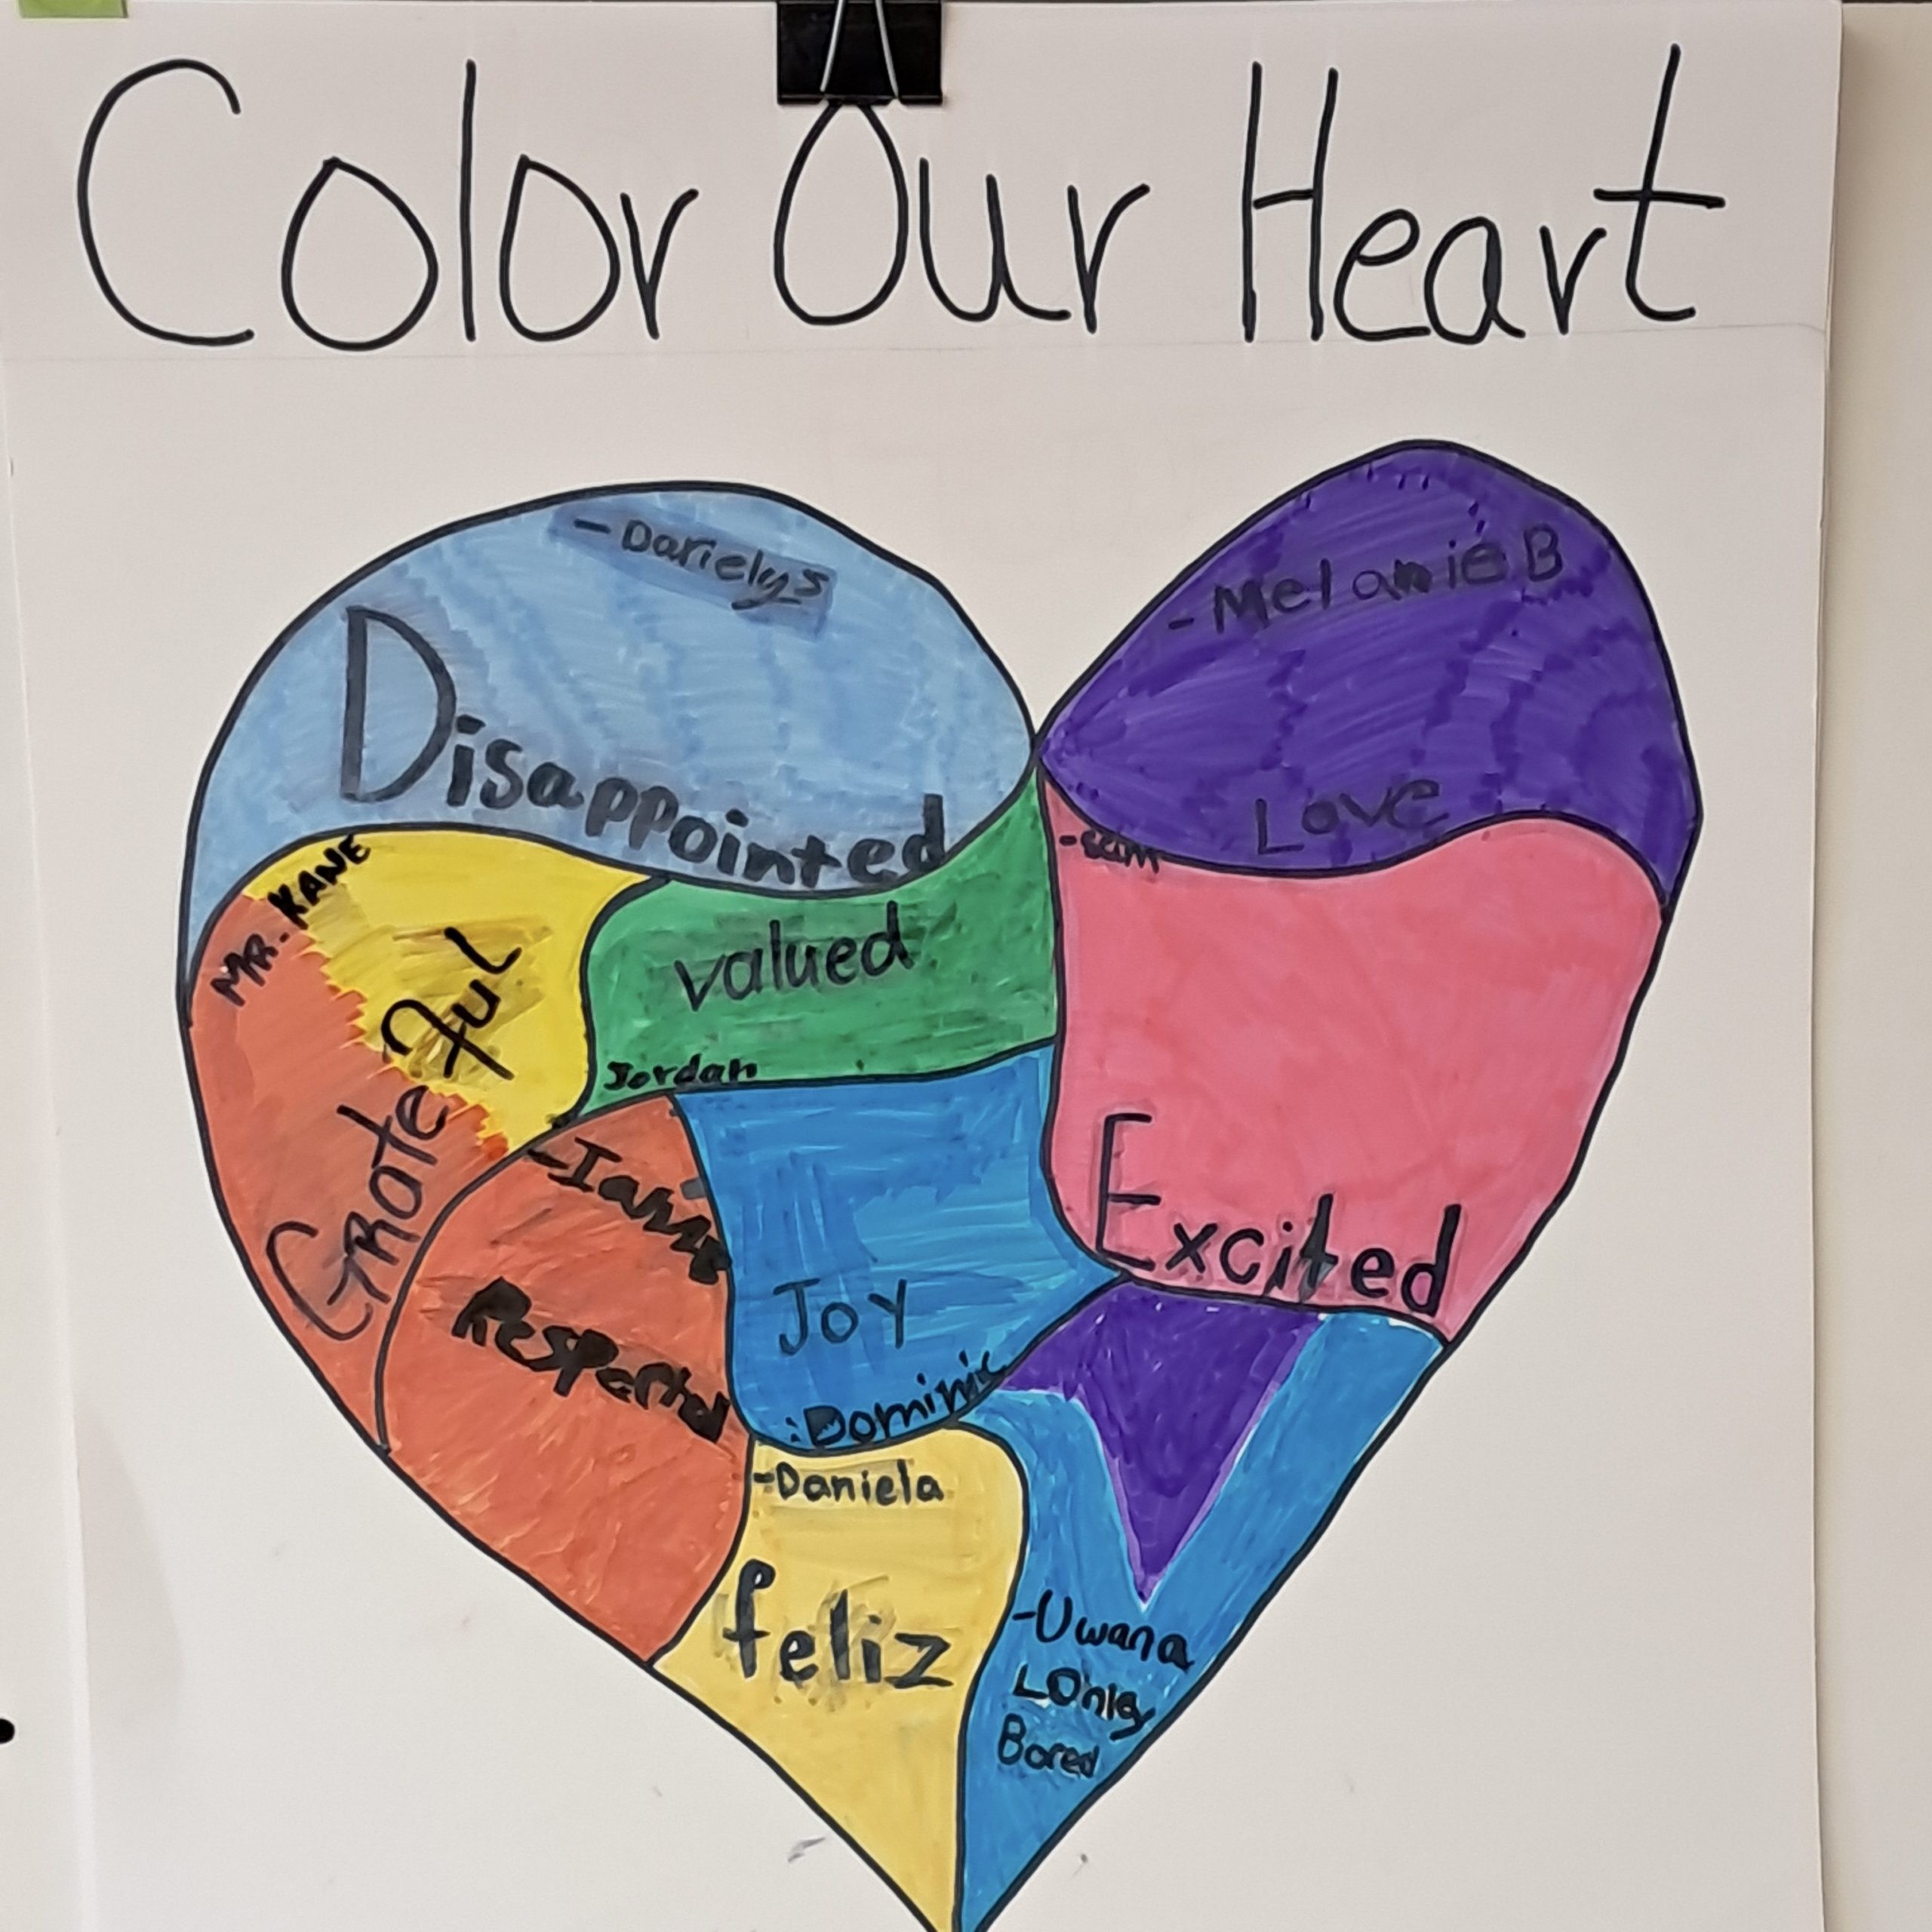 Color Our Heart
- Darielys
Disappointed
- Melanie B
Love
- Sam
Excited
MR. KANE
GRateful
valued
Jordan
Joy
:Dominic
-Daniela
feliz
-Uwana
LOnley
Bored